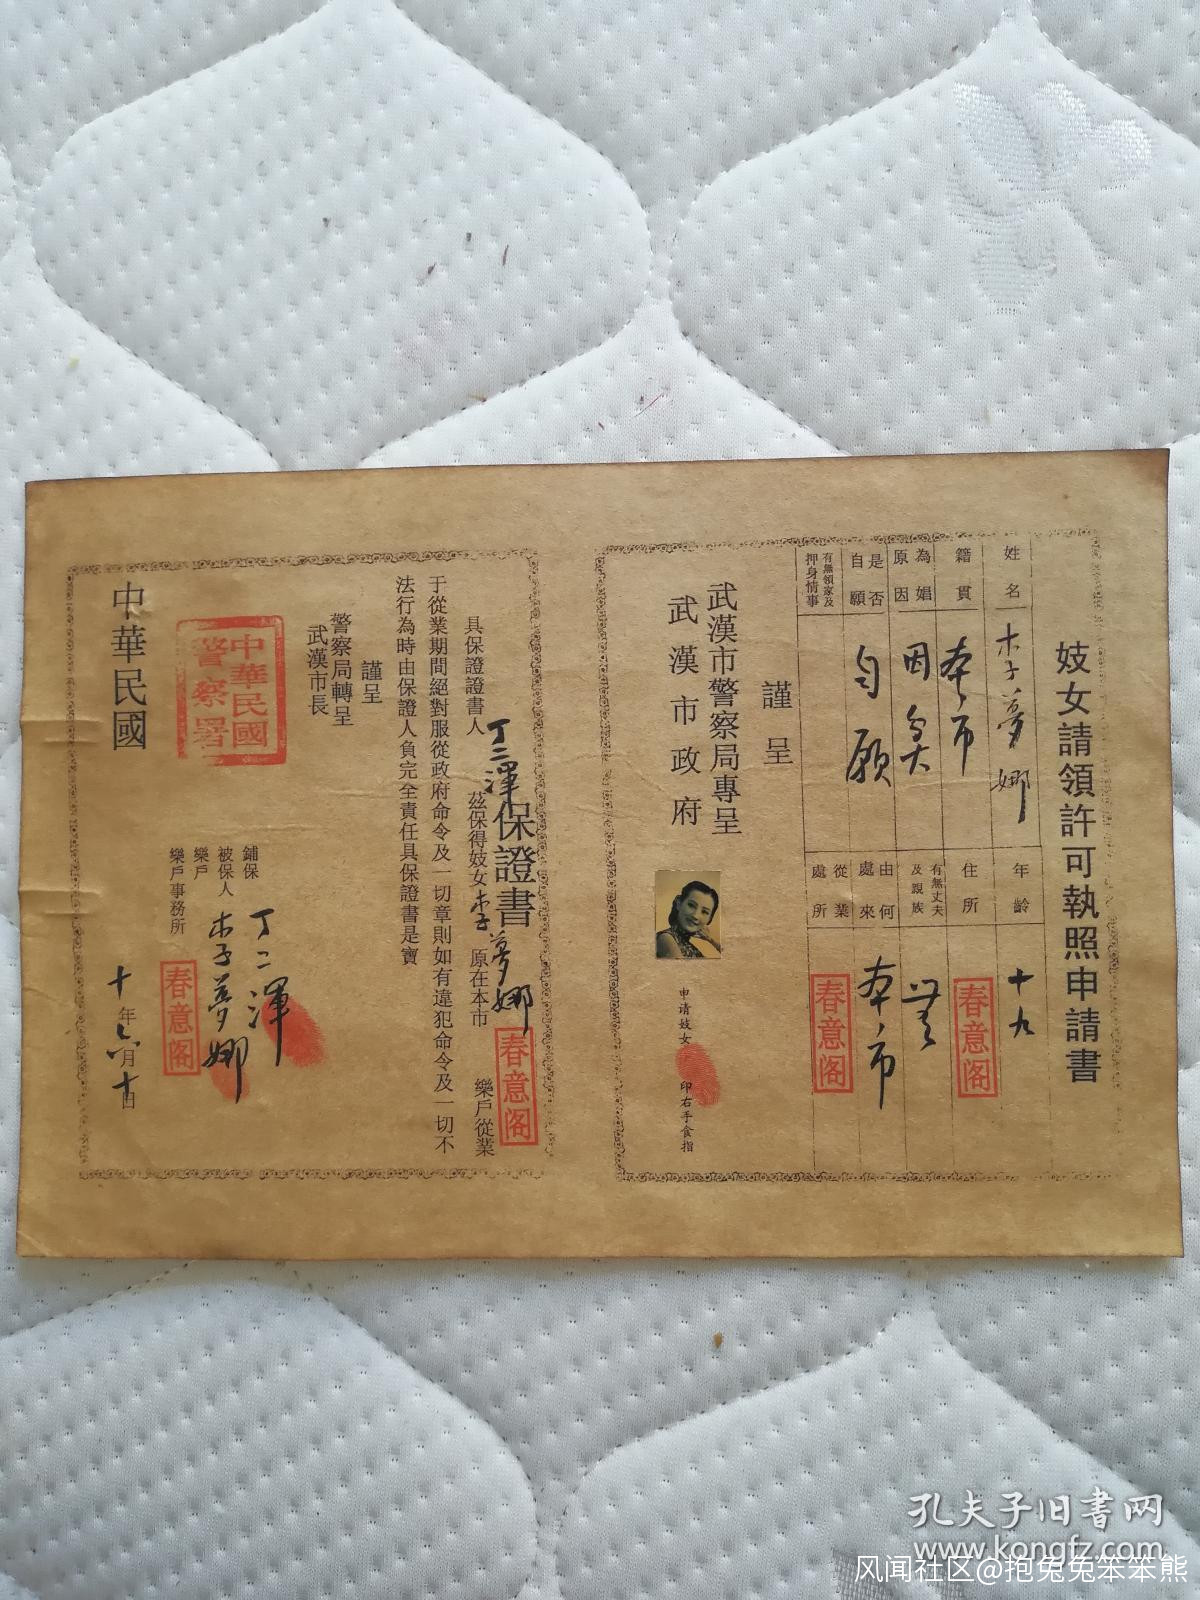 妓女請領許可執照申請書
姓名 李夢娜 年齡 十九
籍貫 本市 住所 春意阁
為娼原因 因負 有無丈夫及親族
是否自願 自願 由何處來 本市
有無領家及押身情事 從業處所 春意阁
謹呈
武漢市警察局專呈
武漢市政府
申请妓女 印右手食指
保證書
具保證證書人 丁二渾 茲保得妓女 李夢娜 原在本市 春意阁 樂戶從業
于從業期間絕對服從政府命令及一切章則如有違犯命令及一切不
法行為時由保證人負完全責任具保證書是寶
謹呈
警察局轉呈
武漢市長
中華民國
警察署
鋪保 丁二渾
被保人 李夢娜
樂戶
樂戶事務所 春意阁
中華民國 十年六月十日
孔夫子旧书网
www.kongfz.com
风闻社区@抱兔兔笨笨熊